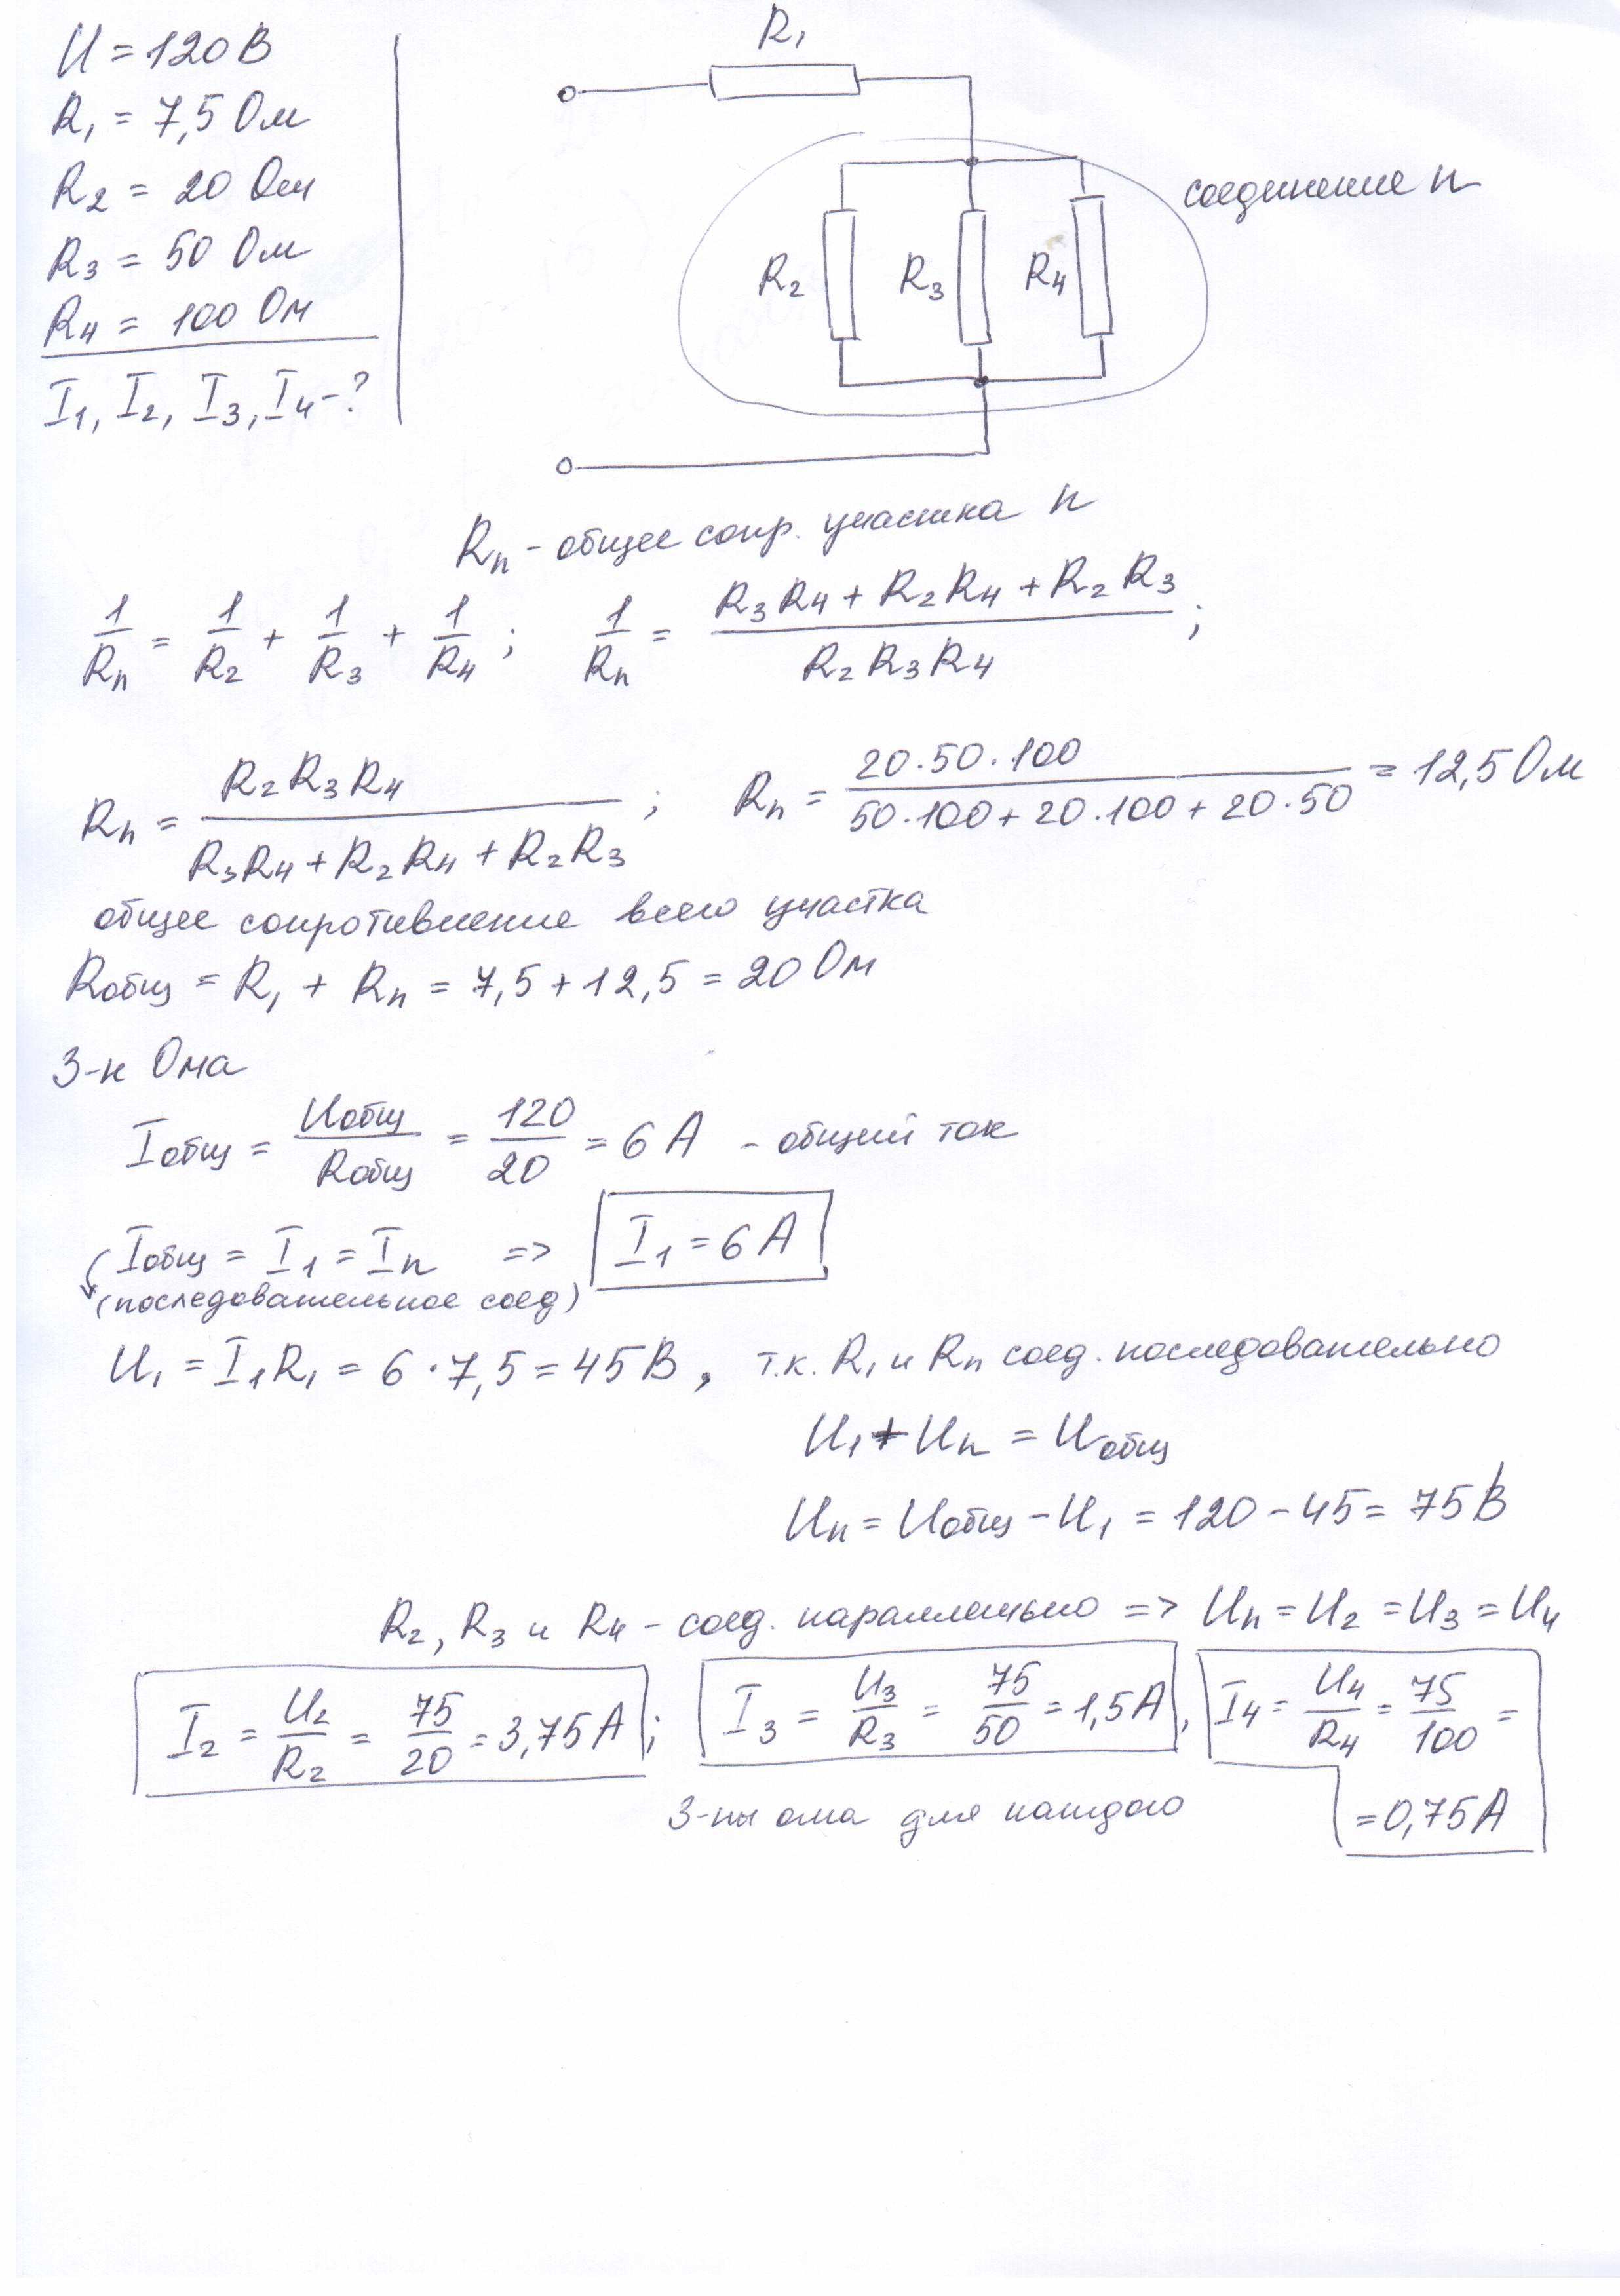 U = 120 В
R₁ = 7,5 Ом
R₂ = 20 Ом
R₃ = 50 Ом
R₄ = 100 Ом
I₁, I₂, I₃, I₄ - ?
R₁
R₂ R₃ R₄
соединение n
Rn - общее сопр. участка n
1/Rn = 1/R₂ + 1/R₃ + 1/R₄ ; 1/Rn = (R₃R₄ + R₂R₄ + R₂R₃)/(R₂R₃R₄) ;
Rn = (R₂R₃R₄)/(R₃R₄ + R₂R₄ + R₂R₃) ; Rn = (20·50·100)/(50·100 + 20·100 + 20·50) = 12,5 Ом
общее сопротивление всего участка
Rобщ = R₁ + Rn = 7,5 + 12,5 = 20 Ом
З-н Ома
Iобщ = Uобщ/Rобщ = 120/20 = 6 А - общий ток
Iобщ = I₁ = In => I₁ = 6 А
(последовательное соед)
U₁ = I₁R₁ = 6 · 7,5 = 45 В , т.к. R₁ и Rn соед. последовательно
U₁ + Un = Uобщ
Un = Uобщ - U₁ = 120 - 45 = 75 В
R₂, R₃ и R₄ - соед. параллельно => Un = U₂ = U₃ = U₄
I₂ = U₂/R₂ = 75/20 = 3,75 А ; I₃ = U₃/R₃ = 75/50 = 1,5 А , I₄ = U₄/R₄ = 75/100 =
= 0,75 А
З-ны ома для каждого